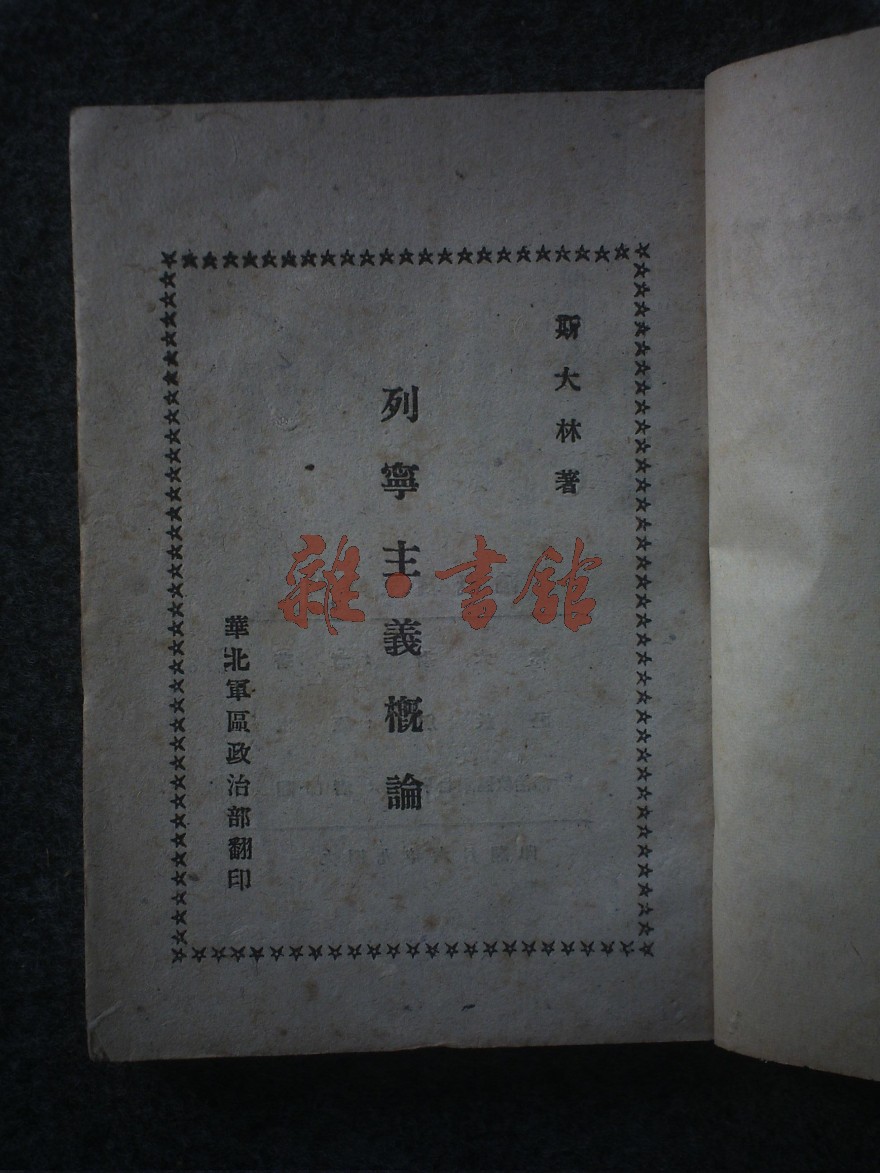 斯大林著
列寧主義概論
華北軍區政治部翻印
雜·書舘